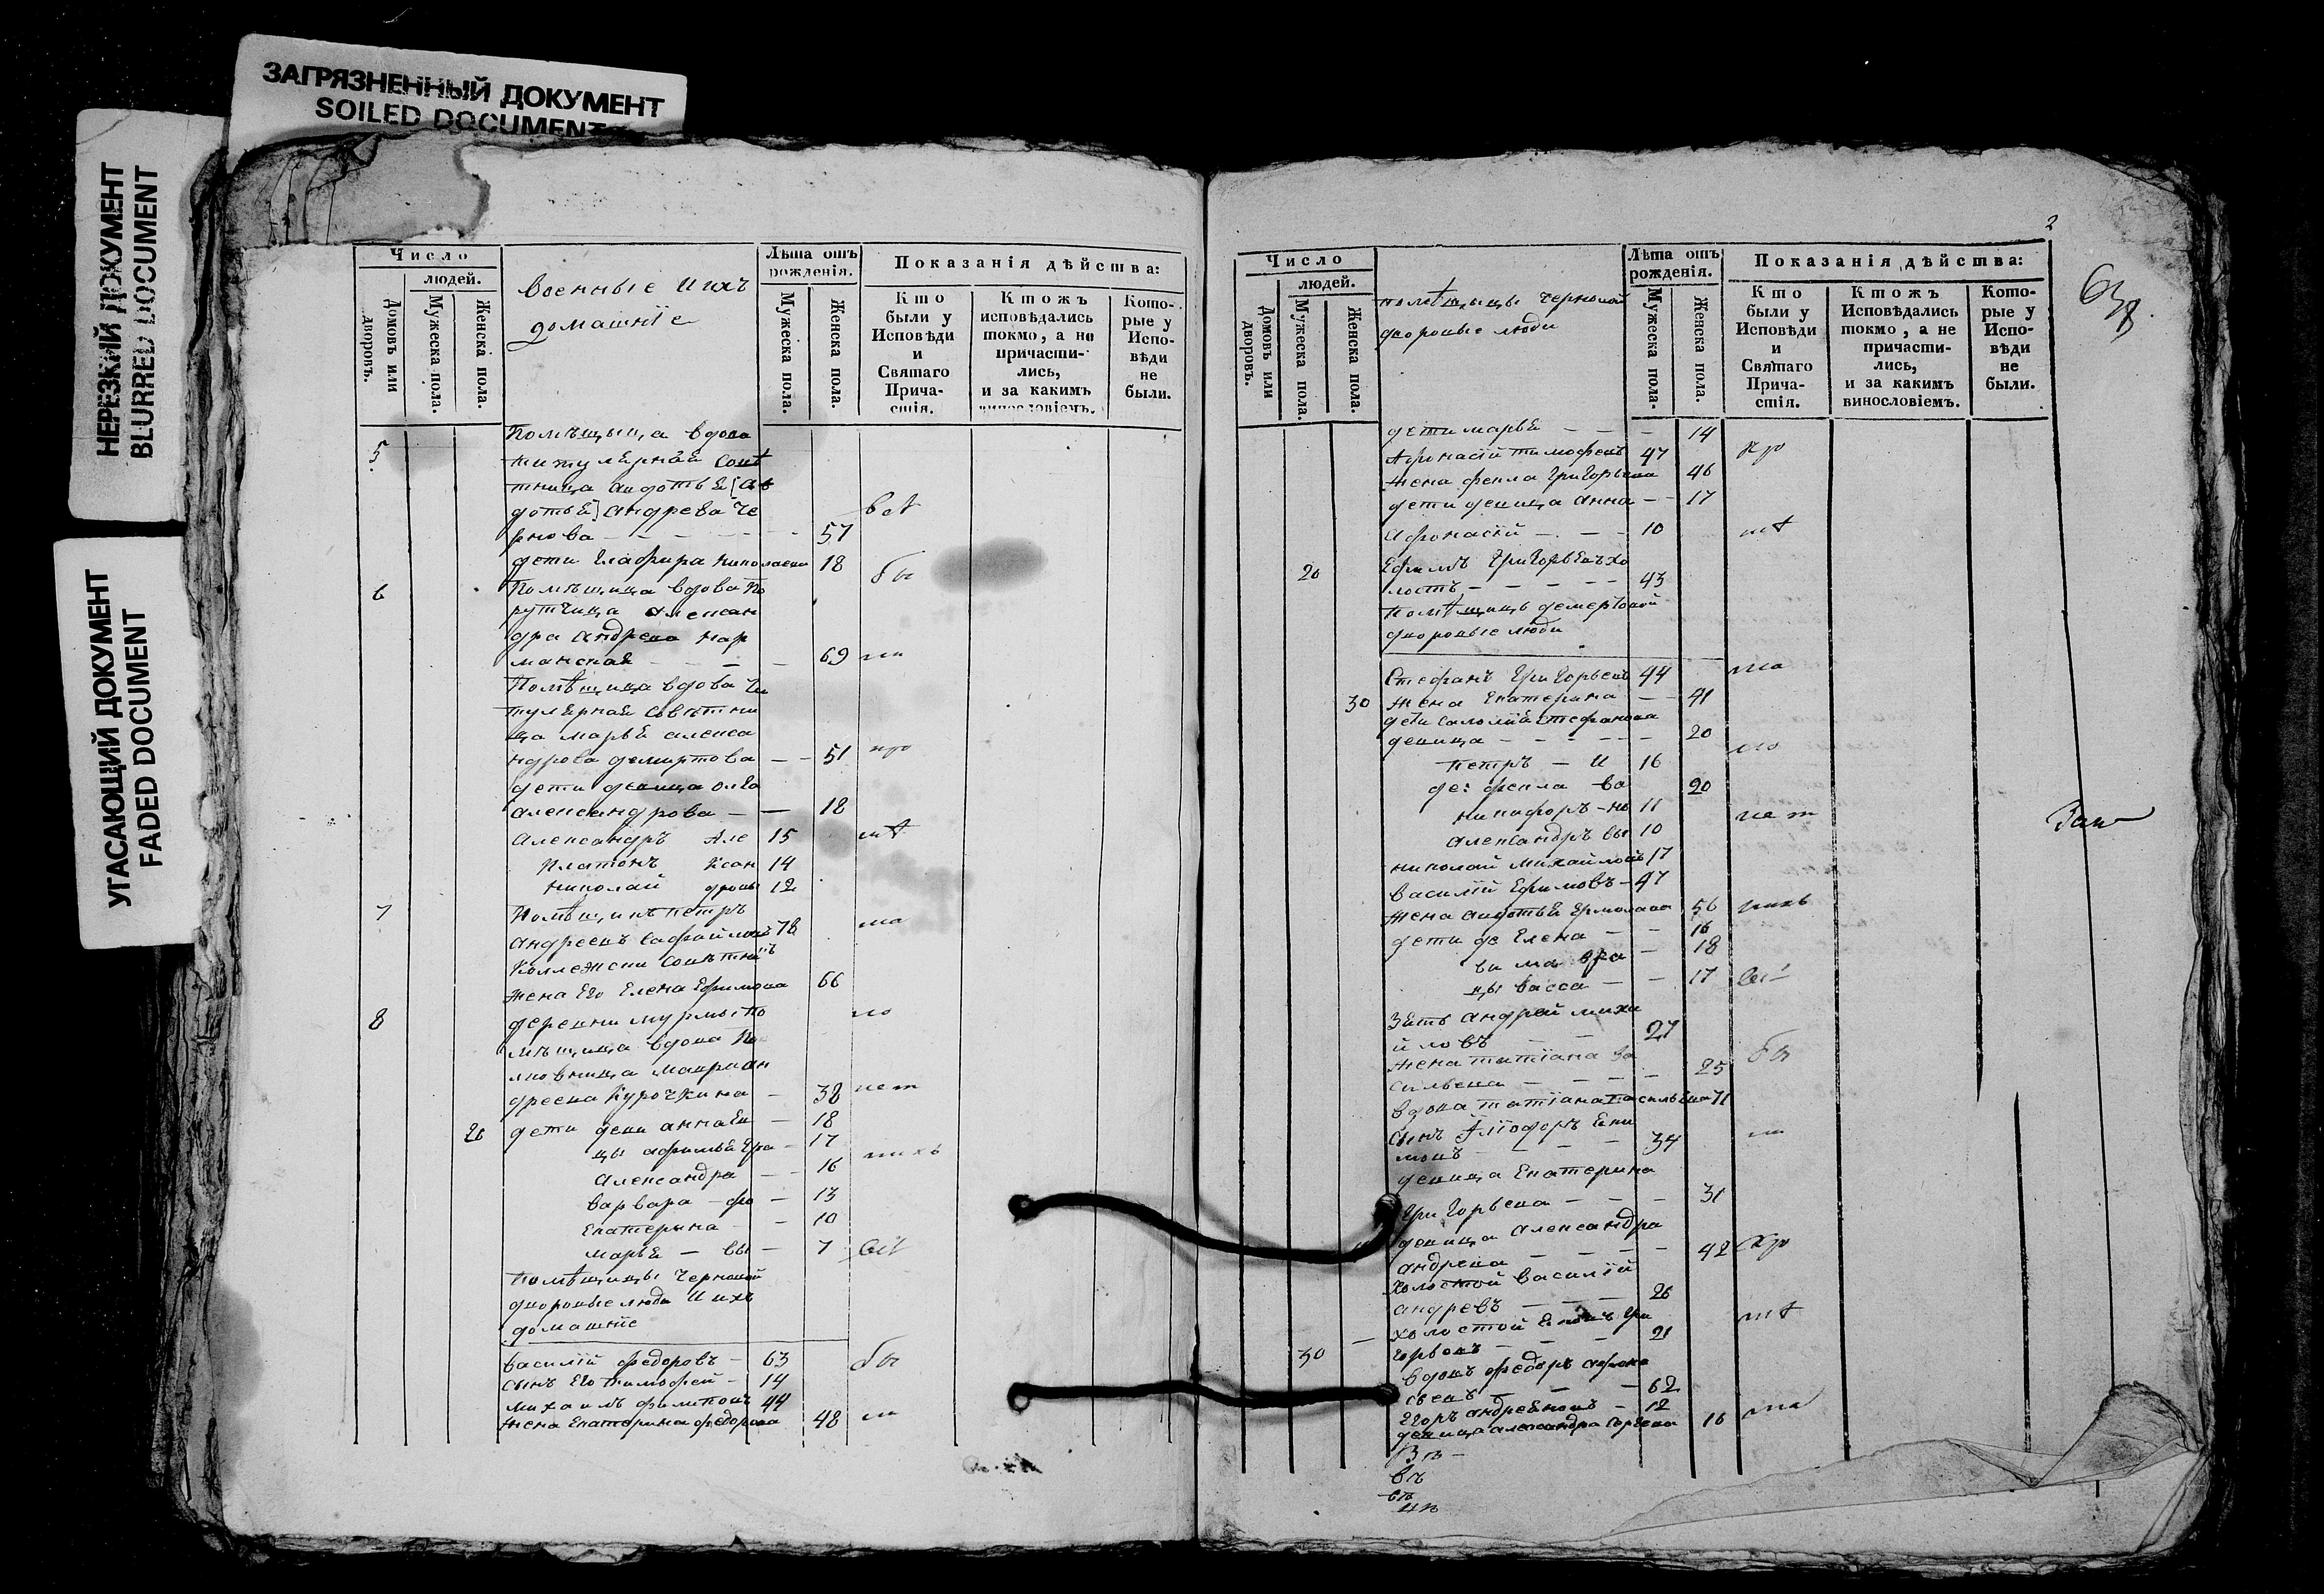 ЗАГРЯЗНЕННЫЙ ДОКУМЕНТ
SOILED DOCUMENT
НЕРЕЗКИЙ ДОКУМЕНТ
BLURRED DOCUMENT
УГАСАЮЩИЙ ДОКУМЕНТ
FADED DOCUMENT
Число
людей.
Домовъ или дворовъ.
Мужеска пола.
Женска пола.
Военные и ихъ
домашніе
Лѣта отъ рожденія.
Мужеска пола.
Женска пола.
Показанія дѣйства:
Кто были у Исповѣди и Святаго Причастія.
Ктожъ исповѣдались токмо, а не причастились, и за какимъ винословіемъ.
Которые у Исповѣди не были.
5 Помѣщица вдова
титулярная совѣ
тница Авдотья [Ав
дотья] Андрева Че всѣ
рнова - - - - 57
дети Глафира Николаева 18 бы
6 Помѣщица вдова по
рутчица Алексан
дра Андрева Нар
манская - - - 69 ли
Помѣщица вдова ти
тулярная совѣтни
ца Марья Алекса
ндрова Демиртова - - 51 про
дети девица Олга
Александрова - - 18
Александръ Але 15 тѣ
Платонъ ксан 14
Николай дровы 12
7 Помѣщикъ Петръ
Андреевъ 78 ма
Коллежски совѣтникъ
жена его Елена Ефимова 66
8 деревни Мурмы по ло
мѣщица вдова по
лковница Мавра Ан
дреева Курочкина - 38 нет
26 дети деви Анна Ен - 18
цы Афимья Гра - 17 нихъ
Александра - - 16
Варвара - фо - 13
Екатерина - - 10
Марья - вы - 7 всѣ
Помѣщицы Черновой
дворовые люди и ихъ
домашніе
Василій Федоровъ - 63 бы
сынъ его Тимофей - 14
Михаилъ Филиповъ 44
жена Екатерина Федорова 48 ли
2
Число
людей.
Домовъ или дворовъ.
Мужеска пола.
Женска пола.
помѣщицы Черновой
дворовые люди
Лѣта отъ рожденія.
Мужеска пола.
Женска пола.
Показанія дѣйства:
Кто были у Исповѣди и Святаго Причастія.
Ктожъ Исповѣдались токмо, а не причастились, и за какимъ винословіемъ.
Которые у Исповѣди не были.
дети Марья - - - 14
Афонасій Тимофеевъ 47 про
жена Фекла Григорьева 46
дети девица Анна - - 17
Афонасій - - - 10 тѣ
20 Ефимъ Григорьевъ хо
лостъ - - - - - 43
Помѣщицы Демертовой
дворовые люди
Стефанъ Григорьевъ 44 ма
30 жена Екатерина - - 41
дети Саломія Стефанова
девица - - - - - 20
Петръ - и 16 ло
де: Фекла ва 20
Никифоръ - но 11 нет
Александръ вы 10
Николай Михайловъ 17
Василій Ефимовъ - 47
жена Авдотья Ермолаева 56 нихъ
дети де Елена - - 16
- 18
цы Васса - - 17 всѣ
зять Андрей Миха
йловъ - - 27
жена Татіана Ва бы
сильева - - - - 25
вдова Татіана Васильева 71
сынъ
- - - 34 ли
девица Екатерина
Григорьева - - - 31
девица Александра
Андрева - - - - 42 про
холостой Василій
Андревъ - - - 26
холостой Гри тѣ
30 горьевъ - - - 21
вдовъ Федоръ Афона
сьевъ - - - 62
Егоръ Андреяновъ - 12
девица Александра 16 ма